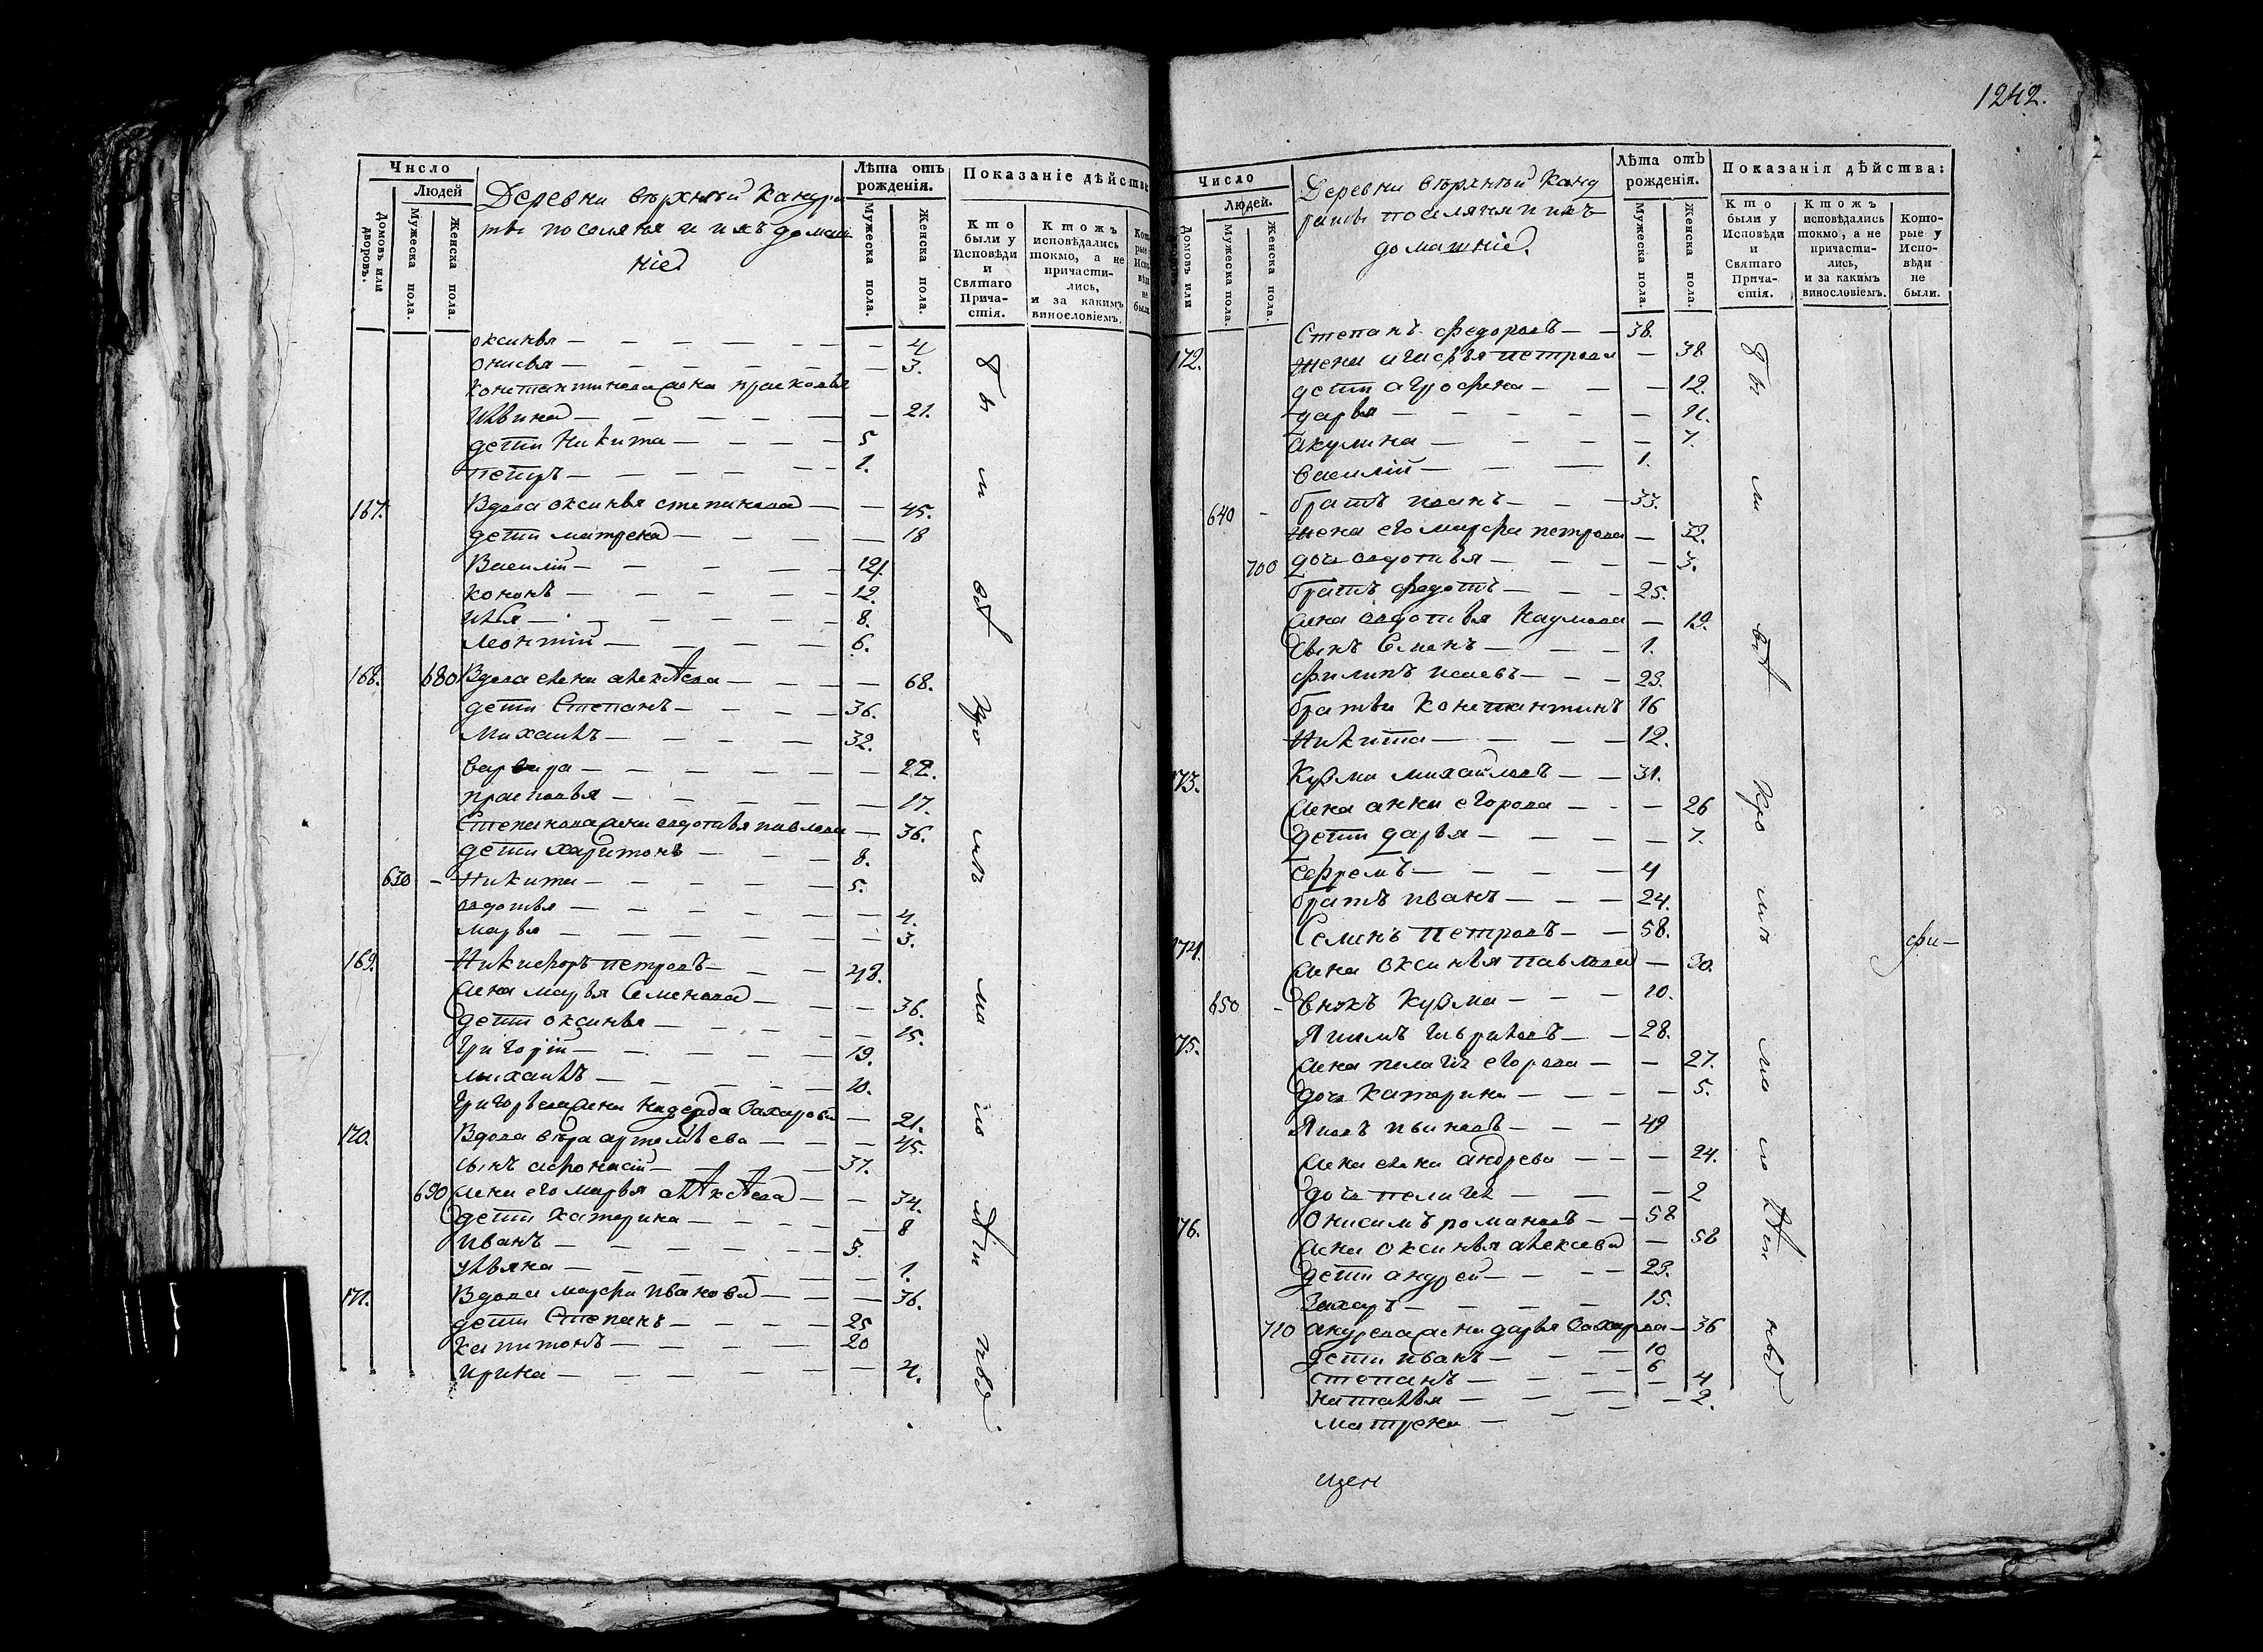 1242.
Число
Людей
Домовъ или дворовъ.
Мужеска пола.
Женска пола.
Деревни верхней Канд
поселяня и ихъ домаш
ніе
Лѣта отъ рожденія.
Мужеска пола.
Женска пола.
Показаніе дѣйств
Кто были у Исповѣди и Святаго Причастія.
Ктожъ исповѣдались токмо, а не причастились, и за какимъ винословіемъ.
оксинья — 4
онисья — 3.
константинова жена прасковья
21.
дети Никита — 5
петръ — 1.
167. Вдова оксинья степанова — 45.
дети матрена — 18
Василій —
кононъ — 12.
илья — 8.
леонтій — 6.
168. 680 Вдова елена алексѣева — 68.
дети Степанъ — 36.
Михаилъ — 32.
варвара — 22.
прасковья — 17.
Степанова жена овдотья павлова — 36.
дети харитонъ — 8.
630 — Никита — 5.
овдотья — 4.
марья — 3.
169. Никифоръ петровъ — 48.
жена марья Семенова — 36.
дети оксинья — 15.
Григорій — 19.
михаилъ — 10.
Григорьева жена надежда Захарова — 21.
170. Вдова вѣра артемьева — 45.
сынъ афонасій — 37.
690 жена его марья алексѣева — 34.
дети катерина — 8
Иванъ — 3.
ульяна — 1.
171. Вдова марфа иванова — 36.
дети Степанъ — 25
капитонъ — 20
ирина — 4.
бы
ли
всѣ
кро
мѣ
ма
ло
лѣтн
Число
Людей.
Домовъ или
Мужеска пола.
Женска пола.
Деревни верхней Канд
поселяня и ихъ
домашніе.
Лѣта отъ рожденія.
Мужеска пола.
Женска пола.
Показанія дѣйства:
Кто были у Исповѣди и Святаго Причастія.
Ктожъ исповѣдались токмо, а не причастились, и за какимъ винословіемъ.
Которые у Исповѣди не были.
172. Степанъ федоровъ — 38.
жена петрова — 38
дети агрофена — 12.
дарья — 11.
акулина — 7.
василій — 1.
640 — братъ иванъ — 33.
жена его марфа петрова — 32.
700 дочь овдотья — 3.
братъ федотъ — 25.
жена овдотья Наумова — 19.
сынъ Семенъ — 1.
филипъ — 23.
братьи Константинъ 16
Никита — 12.
173. Кузма михайловъ — 31.
жена анна егорова — 26
дети дарья — 7.
ефремъ — 4
братъ иванъ — 24.
174. Семенъ Петровъ — 58.
жена оксинья павлова — 30.
650 — внукъ Кузма — 10.
175. гавриловъ — 28.
жена пелагія егорова — 27.
дочь катерина — 5.
ивановъ — 49
жена елена андреева — 24.
дочь пелагія — 2
176. Онисимъ романовъ — 58
жена оксинья алексеева — 58
дети андрей — 23.
Захаръ — 15.
710 андреева жена дарья Захарова — 36
дети иванъ — 10
степанъ — 6
наталья — 4
матрена — 2.
бы
ли
всѣ
кро
мѣ
ма
ло
лѣтн